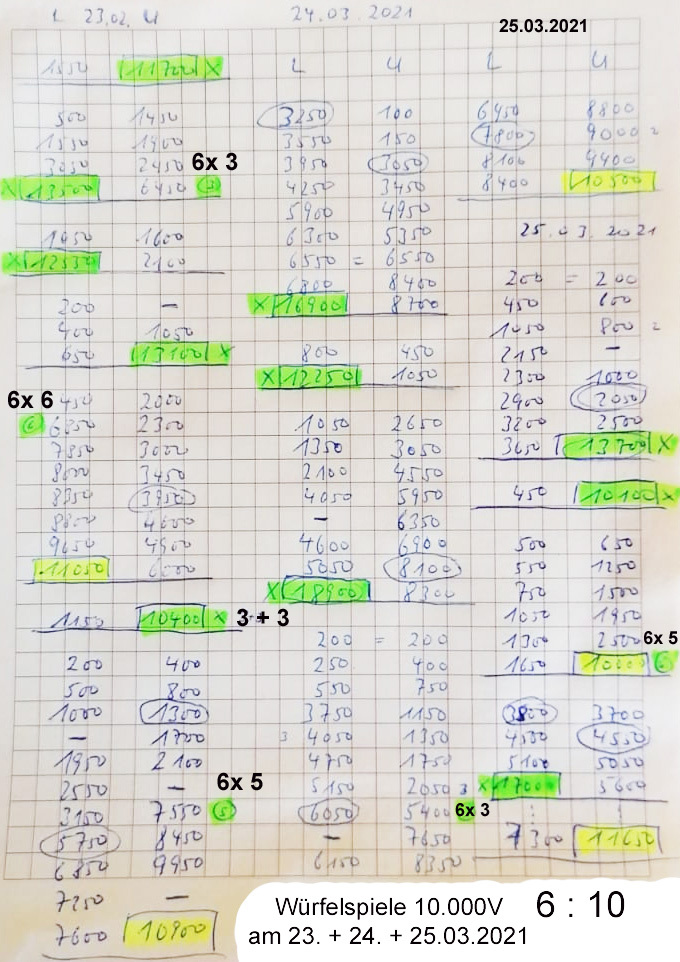 L 23.02. U
1550 11700 X
500 1450
1550 1900
3050 2450 6x 3
X 13500 6450 3
1950 1600
X 12550 2100
200 —
400 1050
650 13100 X
6x 6
450 2000
6 6850 2300
7850 3000
8000 3450
8350 3950
8800 4600
9650 4900
11050 6000
1150 10400 X 3 + 3
200 400
500 800
1000 1300
— 1700
1950 2100
2550 —
6x 5
3150 7550 5
5750 8450
6850 9950
7250 —
7600 10900
24.03.2021
L U
3250 100
3550 150
3950 3050
4250 3450
5900 4950
6300 5350
6550 = 6550
6800 8400
X 16900 8700
800 450
X 12250 1050
1050 2650
1350 3050
2100 4550
4050 5950
— 6350
4600 6900
5050 8100
X 18900 8300
200 = 200
250 400
550 750
3750 1150
3 4050 1350
4750 1750
5150 2050
6050 5400
— 7650
6150 8350
25.03.2021
L U
6950 8800
7800 9000 2
8100 9400
8400 10500
25.03.2021
200 = 200
450 600
1050 800 2
2150 —
2300 1000
2900 2050
3200 2500
3650 13700 X
450 10100 X
500 650
550 1250
750 1500
1050 1950
1300 2500 6x 5
1650 10000
3800 3700
4500 4550
5100 5050
3 X 17000 5600
6x 3
7300 11650
Würfelspiele 10.000V 6 : 10
am 23. + 24. + 25.03.2021